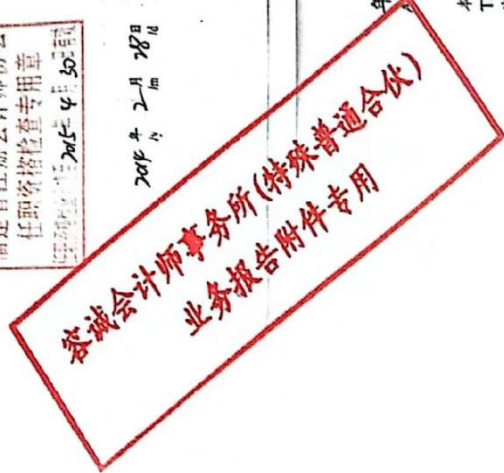 任职资格检查专用章
2015年4月30日
2014年2月28日
容诚会计师事务所(特殊普通合伙)
业务报告附件专用